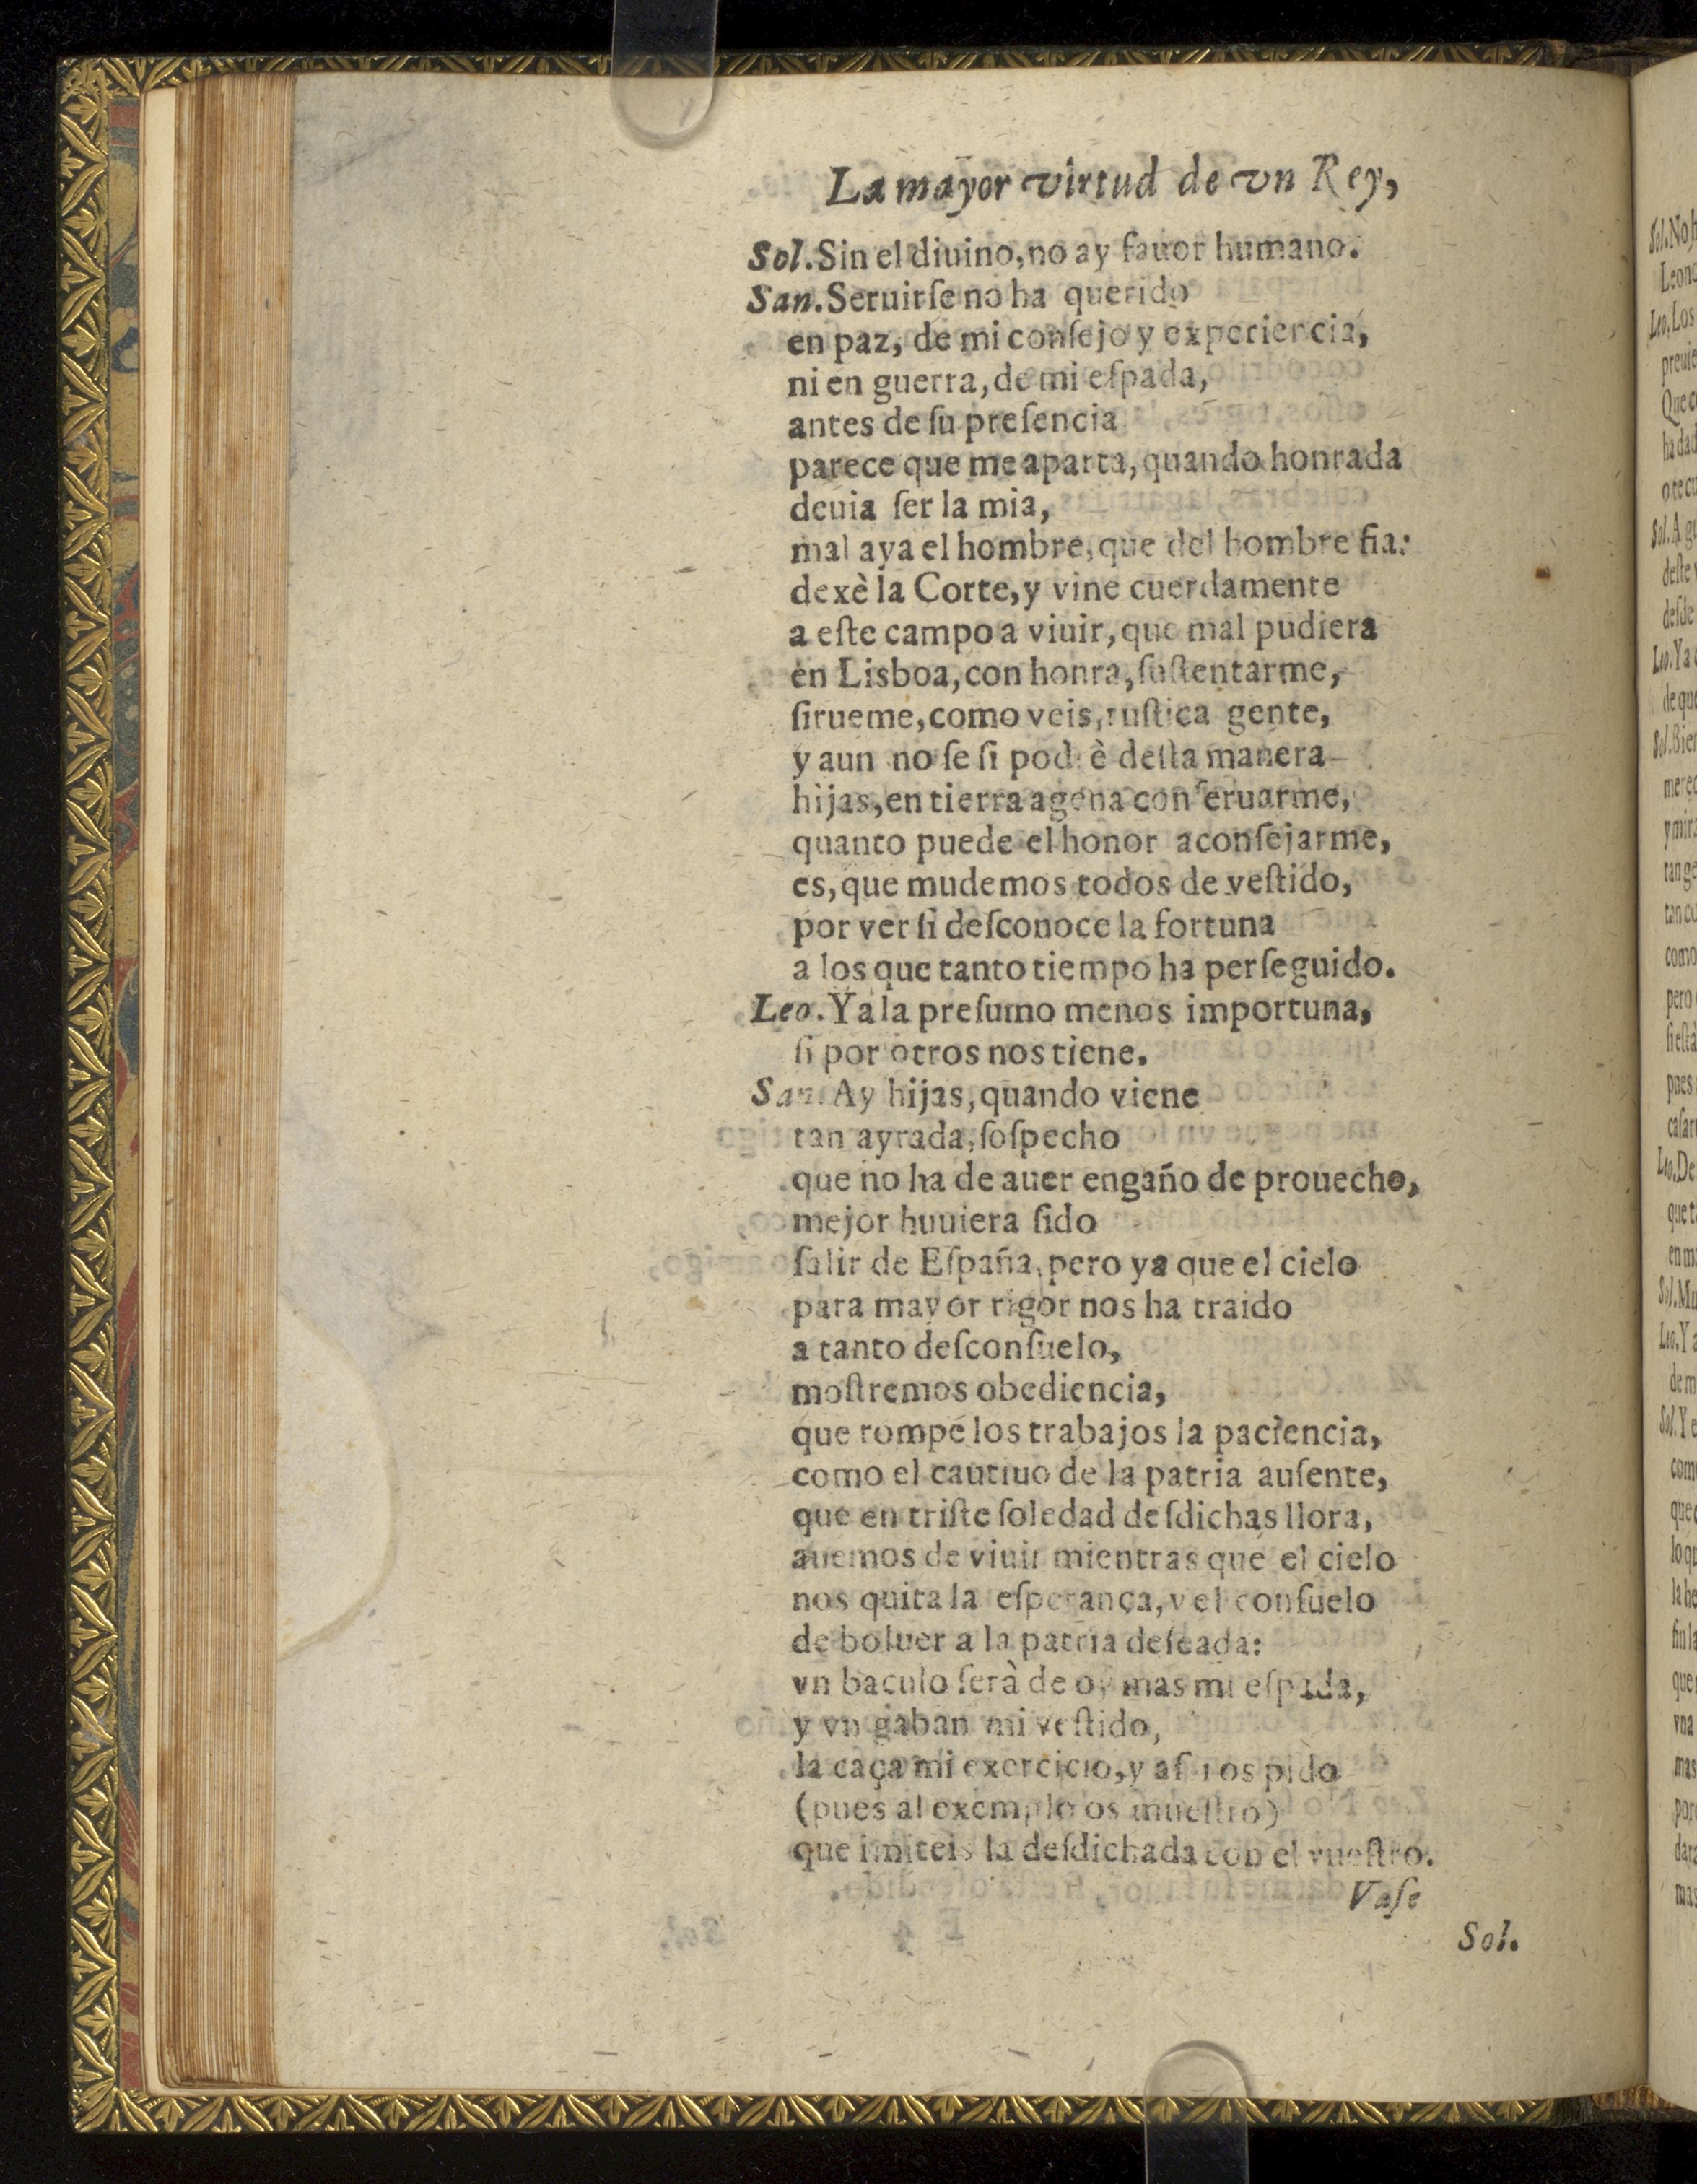 La mayor virtud de vn Rey,
Sol. Sin el diuino, no ay fauor humano.
San. Seruirſe no ha querido
en paz, de mi conſejo y experiencia,
ni en guerra, de mi eſpada,
antes de ſu preſencia
parece que me aparta, quando honrada
deuia ſer la mia,
mal aya el hombre, que del hombre fia:
dexè la Corte, y vine cuerdamente
a eſte campo a viuir, que mal pudiera
en Lisboa, con honra, ſuſtentarme,
ſirueme, como veis, ruſtica gente,
y aun no ſe ſi podrè deſta manera
hijas, en tierra agena conſeruarme,
quanto puede el honor aconſejarme,
es, que mudemos todos de veſtido,
por ver ſi deſconoce la fortuna
a los que tanto tiempo ha perſeguido.
Leo. Ya la preſumo menos importuna,
ſi por otros nos tiene.
San. Ay hijas, quando viene
tan ayrada, ſoſpecho
que no ha de auer engaño de prouecho,
mejor huuiera ſido
ſalir de Eſpaña, pero ya que el cielo
para mayor rigor nos ha traido
a tanto deſconſuelo,
moſtremos obediencia,
que rompe los trabajos la paciencia,
como el cautiuo de la patria auſente,
que en triſte ſoledad deſdichas llora,
auemos de viuir mientras que el cielo
nos quita la eſperança, y el conſuelo
de boluer a la patria deſeada:
vn baculo ſerà de oy mas mi eſpada,
y vn gaban mi veſtido,
la caça mi exercicio, y aſsi os pido
(pues al exemplo os mueſtro)
que imiteis la deſdichada con el vueſtro.
Vaſe
Sol.
Sol. No h
Leon
Leo. Los
preuie
Que c
ha dad
o te cu
Sol. A gu
deſte
deſde
Leo. Ya
de que
Sol. Bien
merec
y mira
tan ge
tan co
como
pero
ſi eſtà
pues
caſar
Leo. De
que t
en m
Sol. Mu
Leo. Y a
de m
Sol. Y e
com
que
lo qu
la he
ſin la
que
vna
mas
por
dara
mas